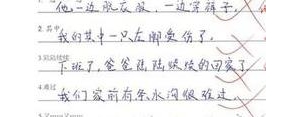 他一边脱衣服，一边穿裤子。
2.其中
我们其中一只左脚受伤了。
3.陆陆续续
下班了，爸爸陆陆续续的回家了。
4.通过
我们家前有条水沟很难过。